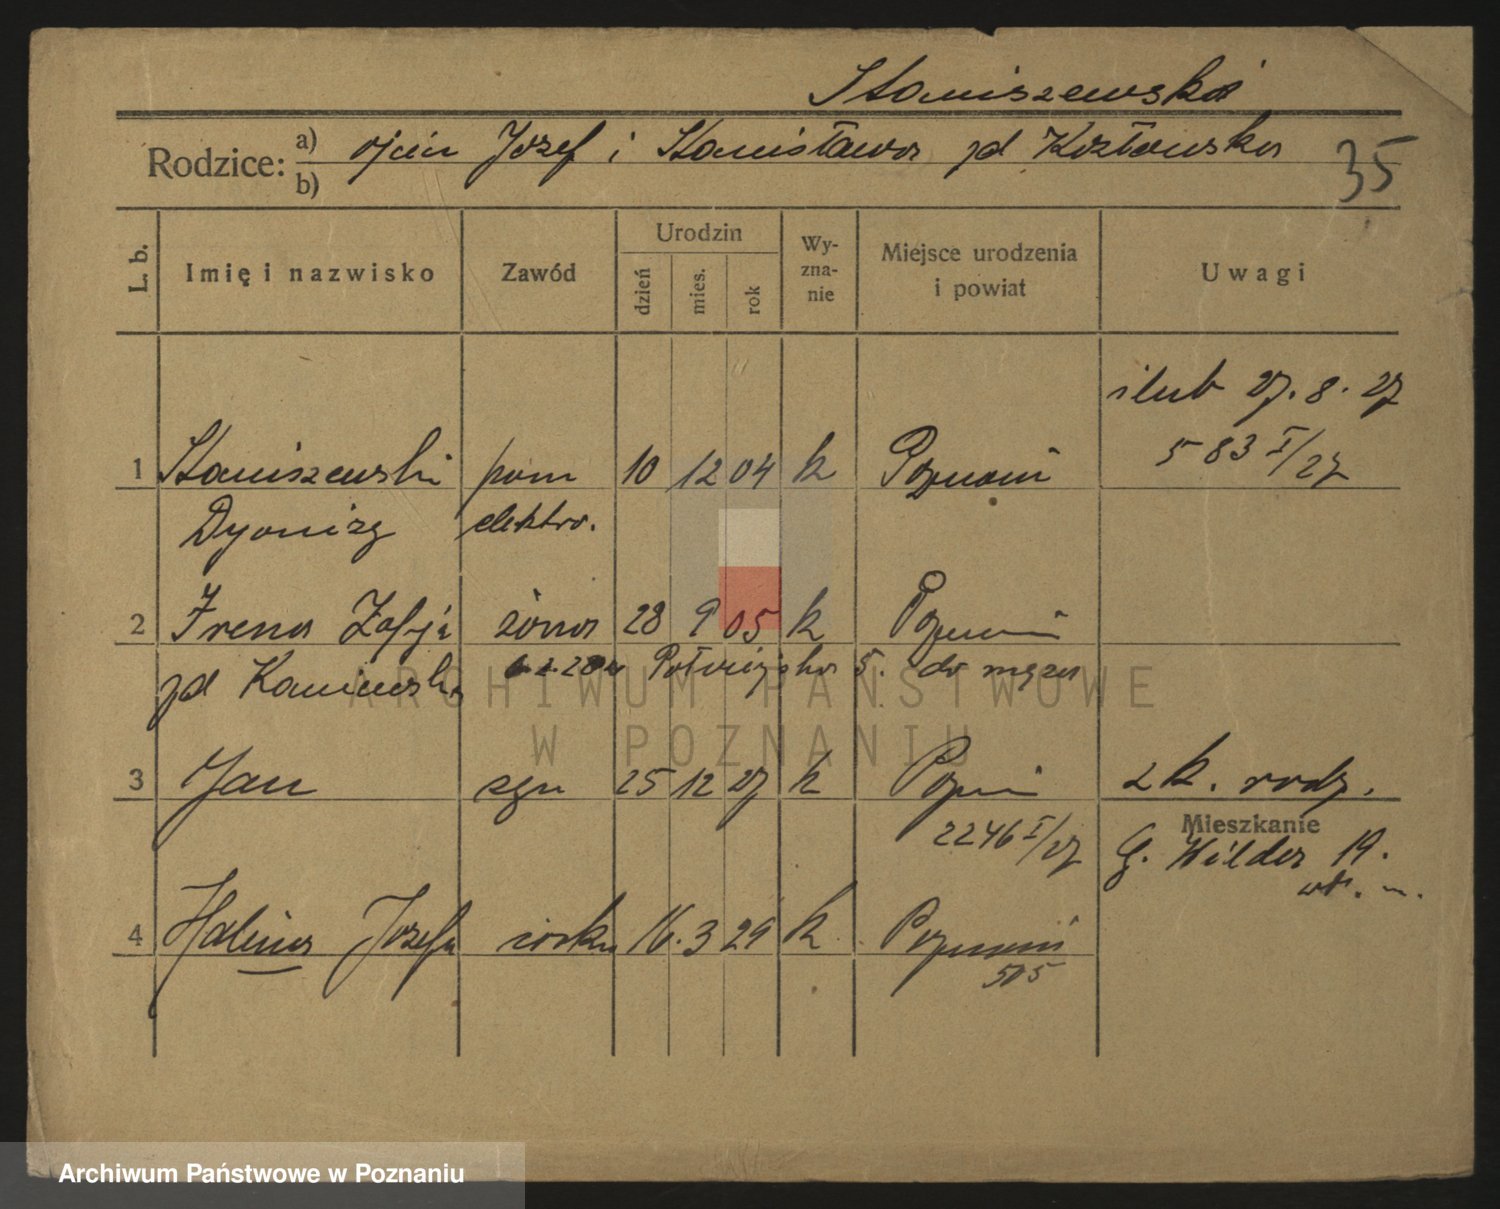 Staniszewski
Rodzice: a) ojciec Józef i Stanisława zd Kozłowska
b)
35
L. b. Imię i nazwisko Zawód Urodzin dzień mies. rok Wy-zna-nie Miejsce urodzenia i powiat Uwagi
ślub 27. 8. 27
583 I/27
1 Staniszewski pom 10 12 04 k Poznań
Dyonizy elektro.
2 Irena Zofja żona 28 9 05 k Poznań
zd Kaniewska Półwiejska 5. do męża
3 Jan syn 25 12 27 k Poznań z k. rodz.
2246 I/27
Mieszkanie
G. Wilda 19.
4 Halina Józefa córka 16. 3 29 k Poznań
505
ARCHIWUM PAŃSTWOWE
W POZNANIU
Archiwum Państwowe w Poznaniu